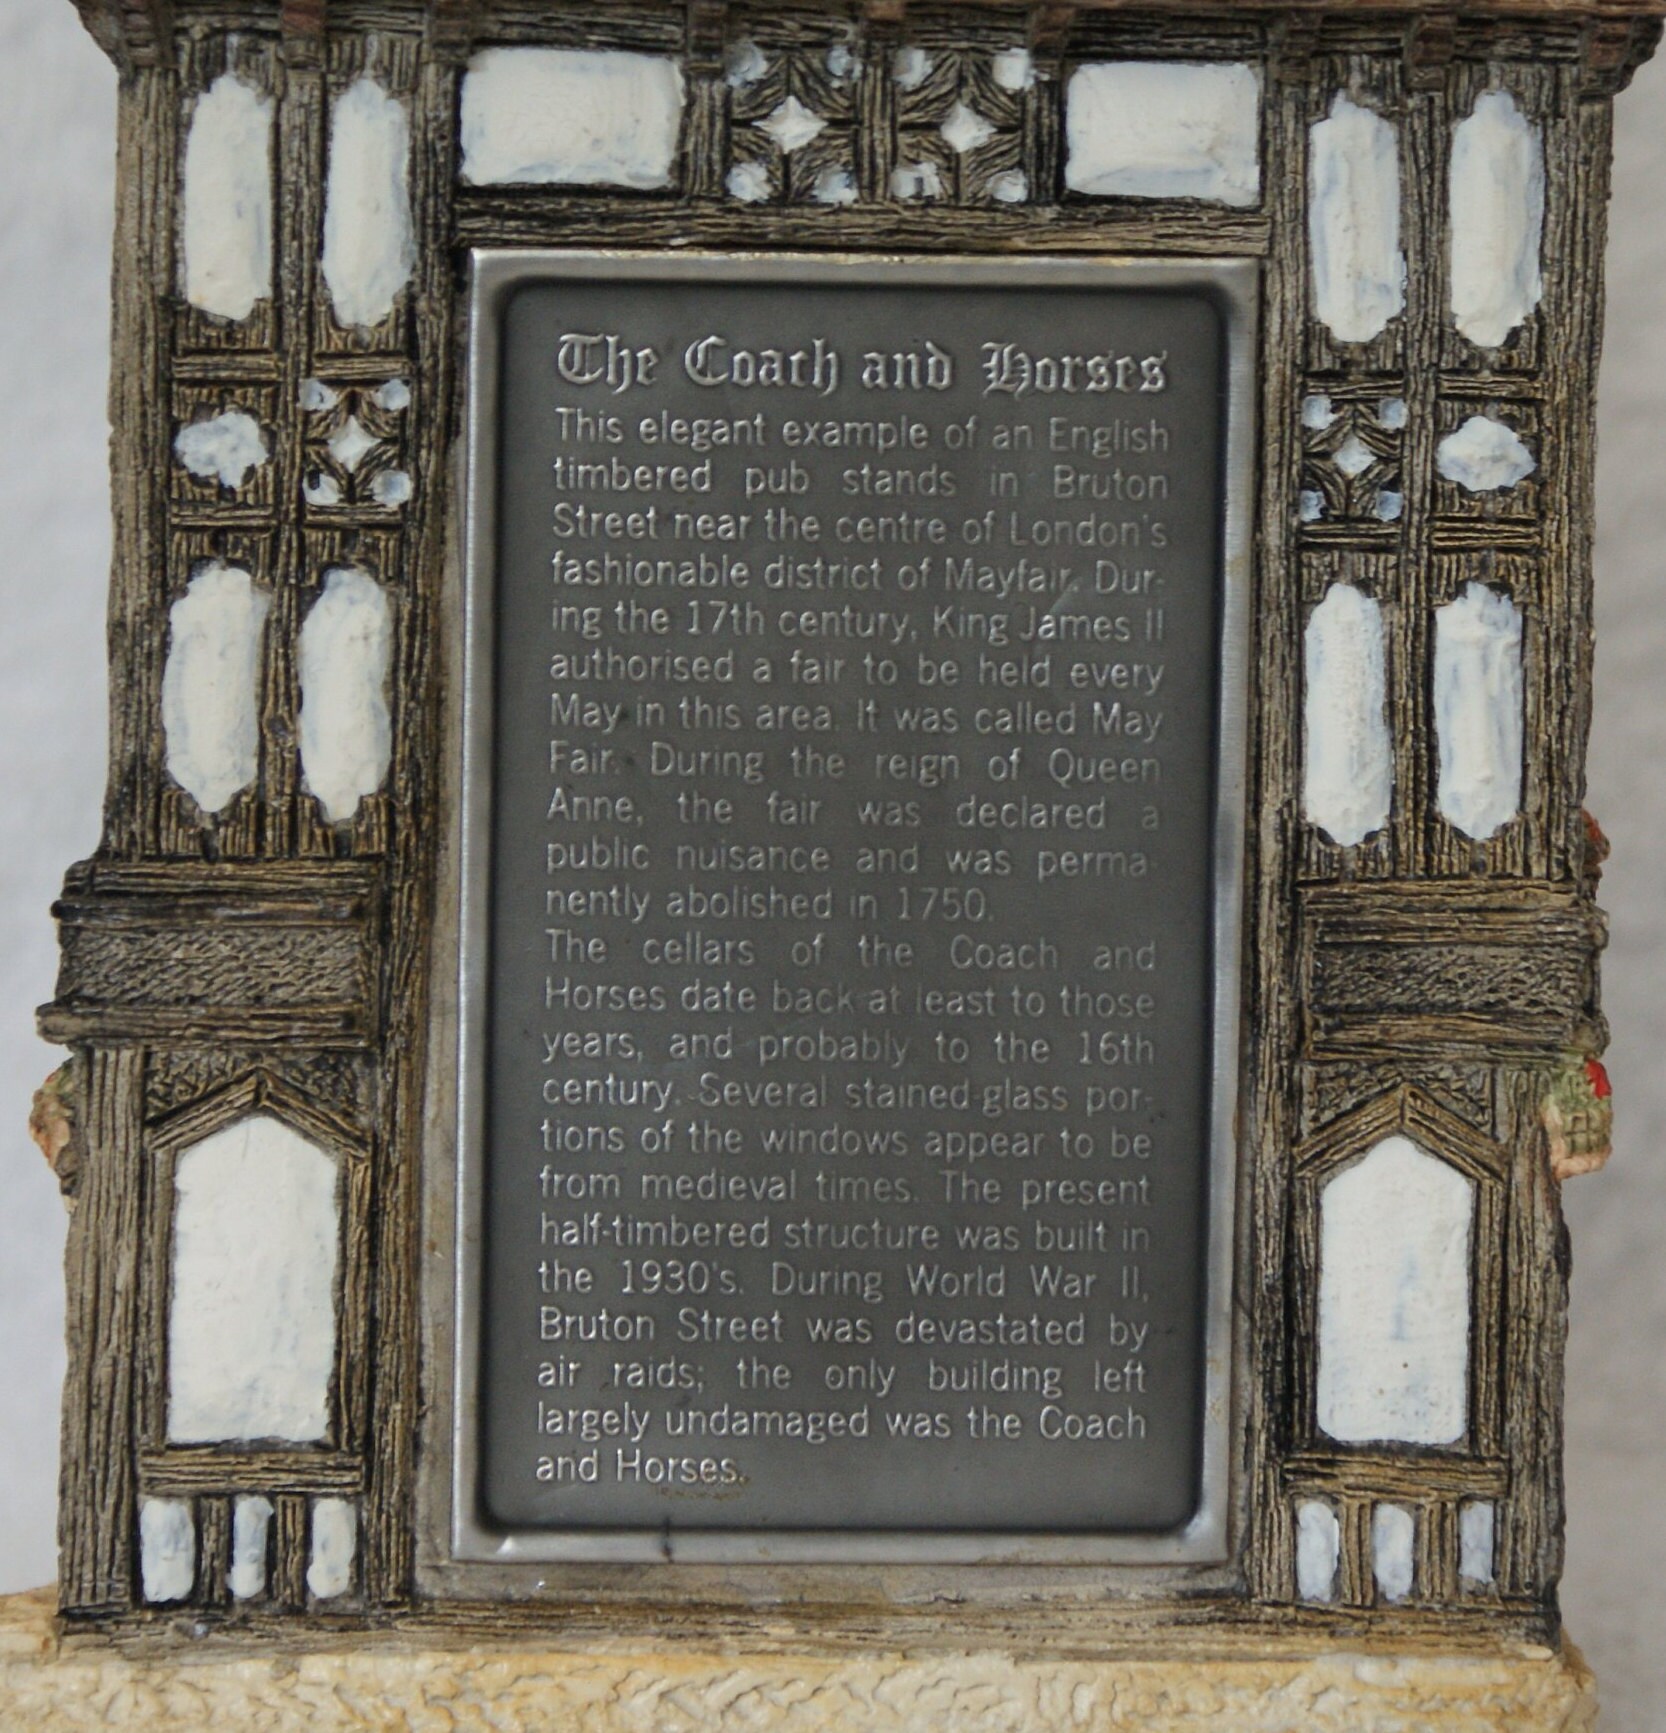 The Coach and Horses
This elegant example of an English
timbered pub stands in Bruton
Street near the centre of London's
fashionable district of Mayfair. Dur-
ing the 17th century, King James II
authorised a fair to be held every
May in this area. It was called May
Fair. During the reign of Queen
Anne, the fair was declared a
public nuisance and was perma-
nently abolished in 1750.
The cellars of the Coach and
Horses date back at least to those
years, and probably to the 16th
century. Several stained-glass por-
tions of the windows appear to be
from medieval times. The present
half-timbered structure was built in
the 1930's. During World War II,
Bruton Street was devastated by
air raids; the only building left
largely undamaged was the Coach
and Horses.